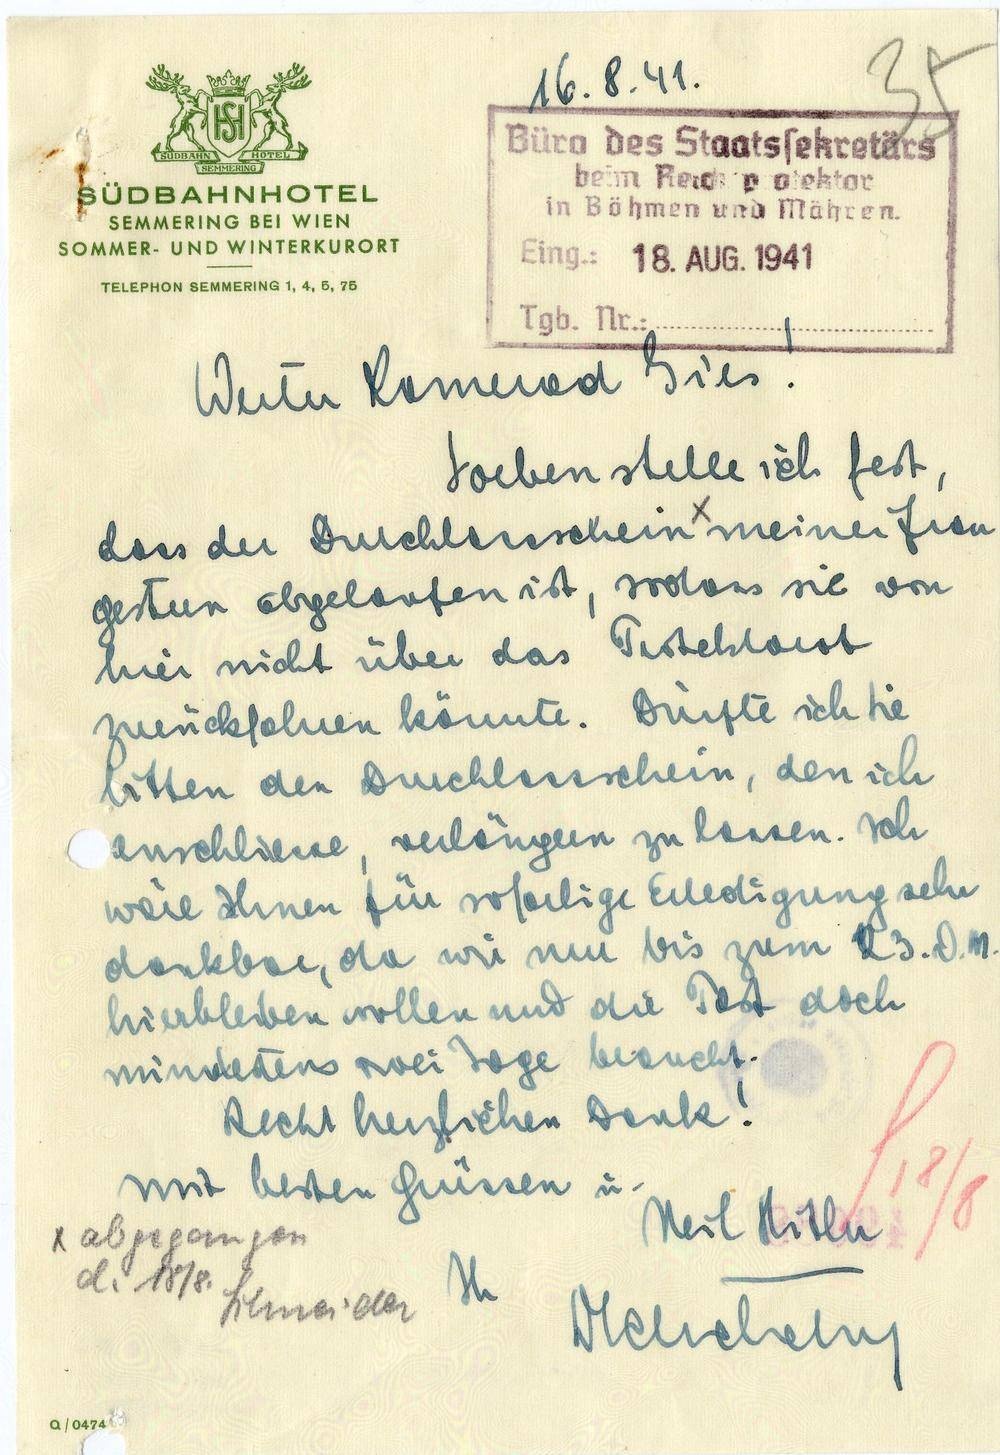 16. 8. 41.
35
SÜDBAHN HOTEL
SEMMERING
SÜDBAHNHOTEL
SEMMERING BEI WIEN
SOMMER- UND WINTERKURORT
TELEPHON SEMMERING 1, 4, 5, 75
Büro des Staatssekretärs
beim Reichsprotektor
in Böhmen und Mähren.
Eing.: 18. AUG. 1941
Tgb. Nr.:
Werter Kamerad Gies!
Soeben stelle ich fest,
dass der Durchlassschein x meiner Frau
gestern abgelaufen ist, sodass sie von
hier nicht über das Protektorat
zurückfahren könnte. Dürfte ich Sie
bitten den Durchlassschein, den ich
anschliesse, verlängern zu lassen. Ich
wäre Ihnen für sofortige Erledigung sehr
dankbar, da wir nur bis zum 23. d. M.
hierbleiben wollen und die Post doch
mindestens zwei Tage braucht.
Recht herzlichen Dank!
Mit besten Grüssen u.
Heil Hitler
18/8
x abgegangen
d. 18/8. Schneider
Ihr
Q/0474